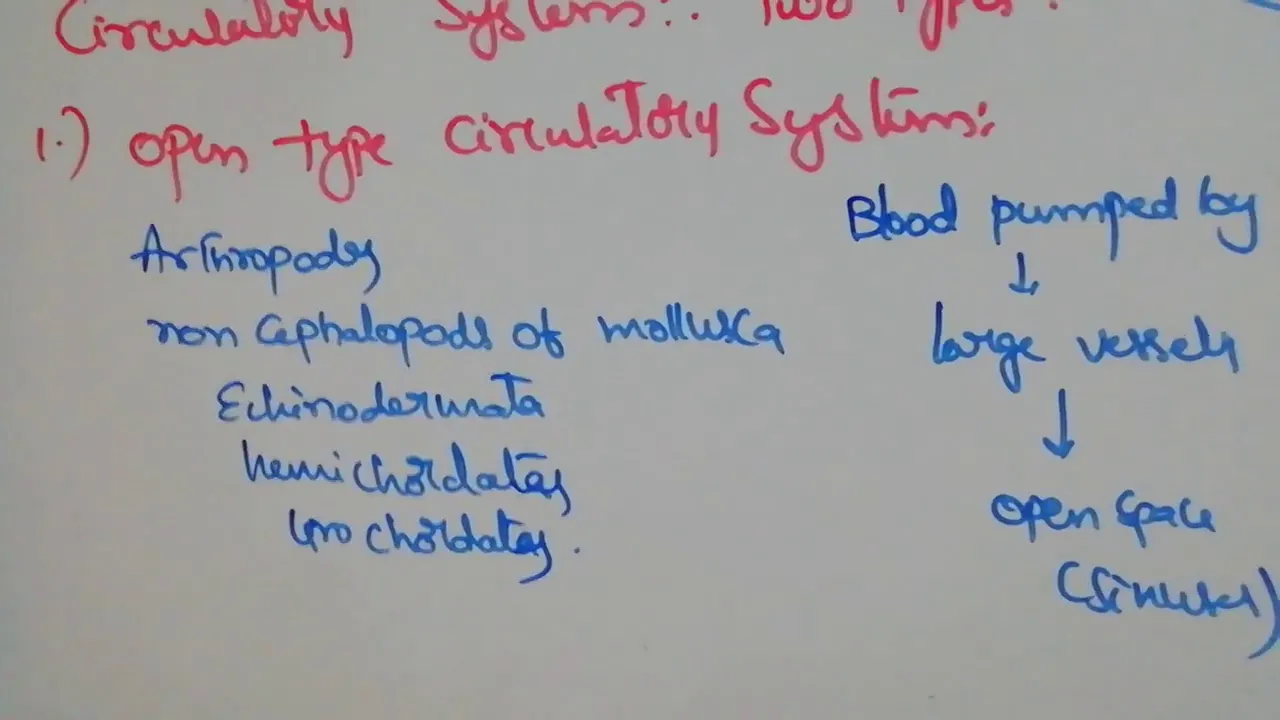 Circulatory System:. Two Types:
1.) Open type Circulatory System:
Arthropods
non Cephalopods of mollusca
Echinodermata
hemichordates
Urochordates.
Blood pumped by
↓
large vessels
↓
open space
(Sinuses)